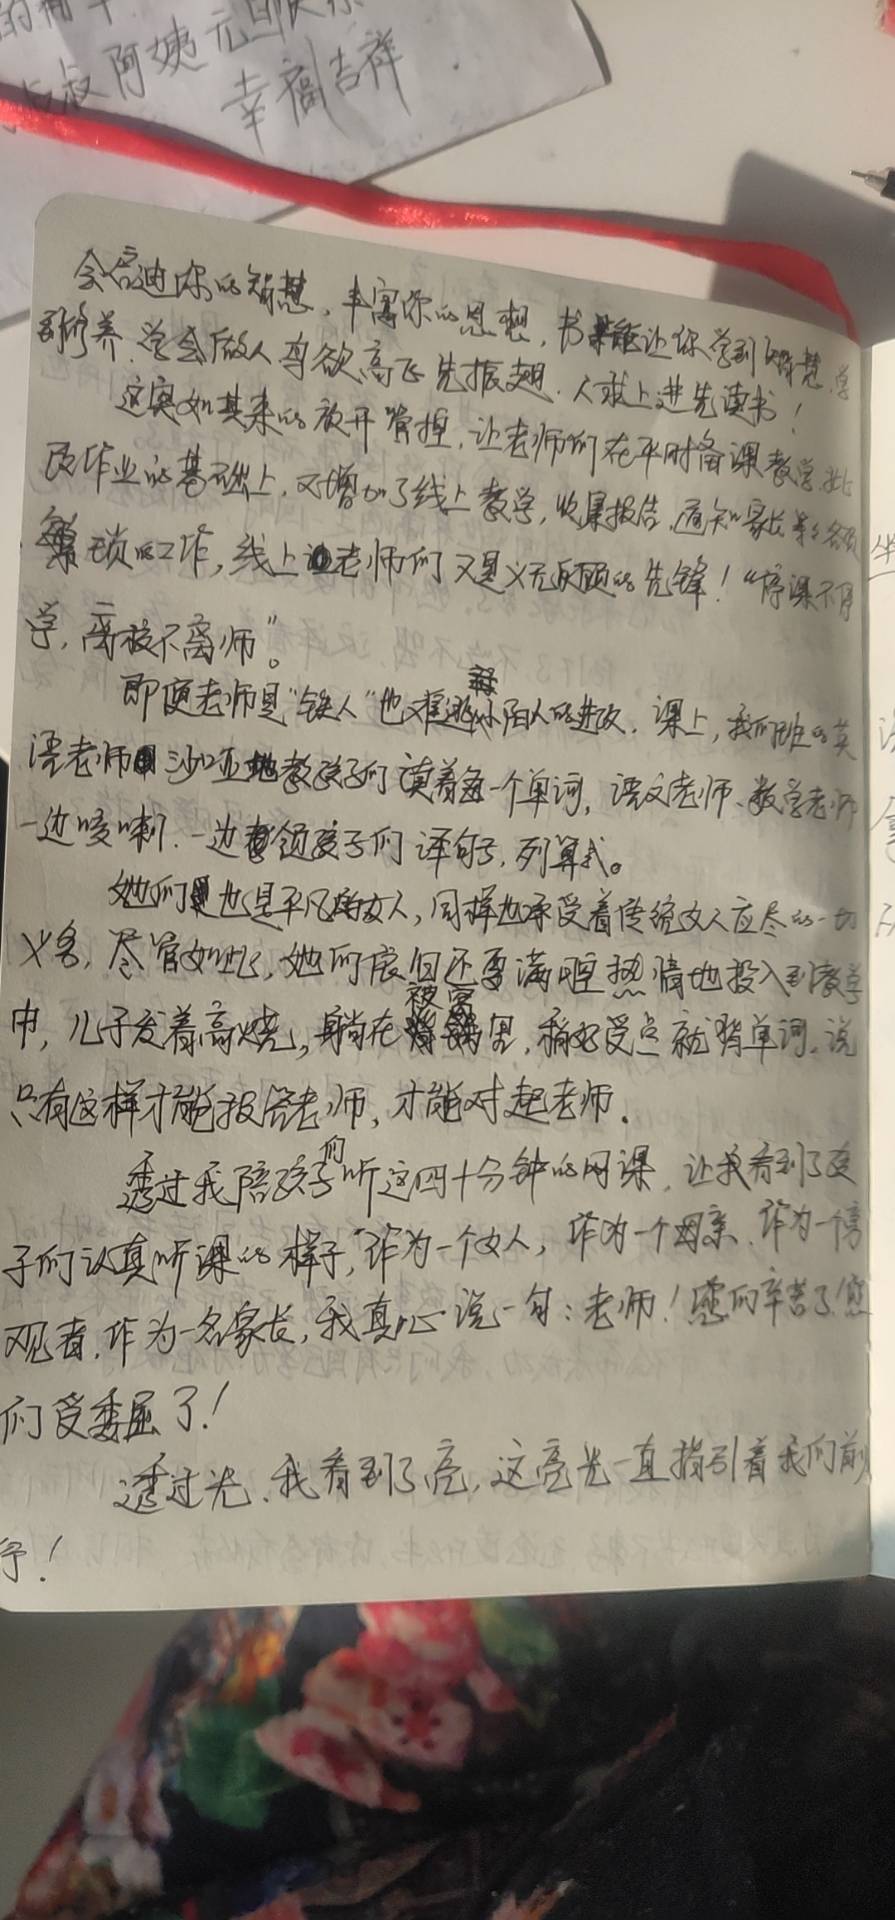 叔阿姨元旦快乐
幸福吉祥
会启迪你的智慧，丰富你的思想，书能让你学到智慧，学
到修养，学会做人，鸟欲高飞先振翅，人求上进先读书！
这突如其来的放开管控，让老师们在平时备课教学，批
改作业的基础上，又增加了线上教学，收集报告，通知家长等各项
繁琐的工作，线上老师们又是义无反顾的先锋！“停课不停
学，离校不离师”。
即便老师是“铁人”也难逃小阳人的进攻，课上，我们班的英
语老师沙哑地教孩子们读着每一个单词，语文老师、数学老师
一边咳嗽，一边带领孩子们译句子，列算式。
她们也是平凡的女人，同样也承受着传统女人应尽的一切
义务，尽管如此，她们依旧还要满腔热情地投入到教学
中，儿子发着高烧，躺在被窝里，稍好受点就背单词，说
只有这样才能报答老师，才能对起老师。
透过我陪孩子们听这四十分钟的网课，让我看到了孩
子们认真听课的样子，作为一个女人，作为一个母亲，作为一个旁
观者，作为一名家长，我真心说一句：老师！您们辛苦了！您
们受委屈了！
透过光，我看到了亮，这亮光一直指引着我们前
行！